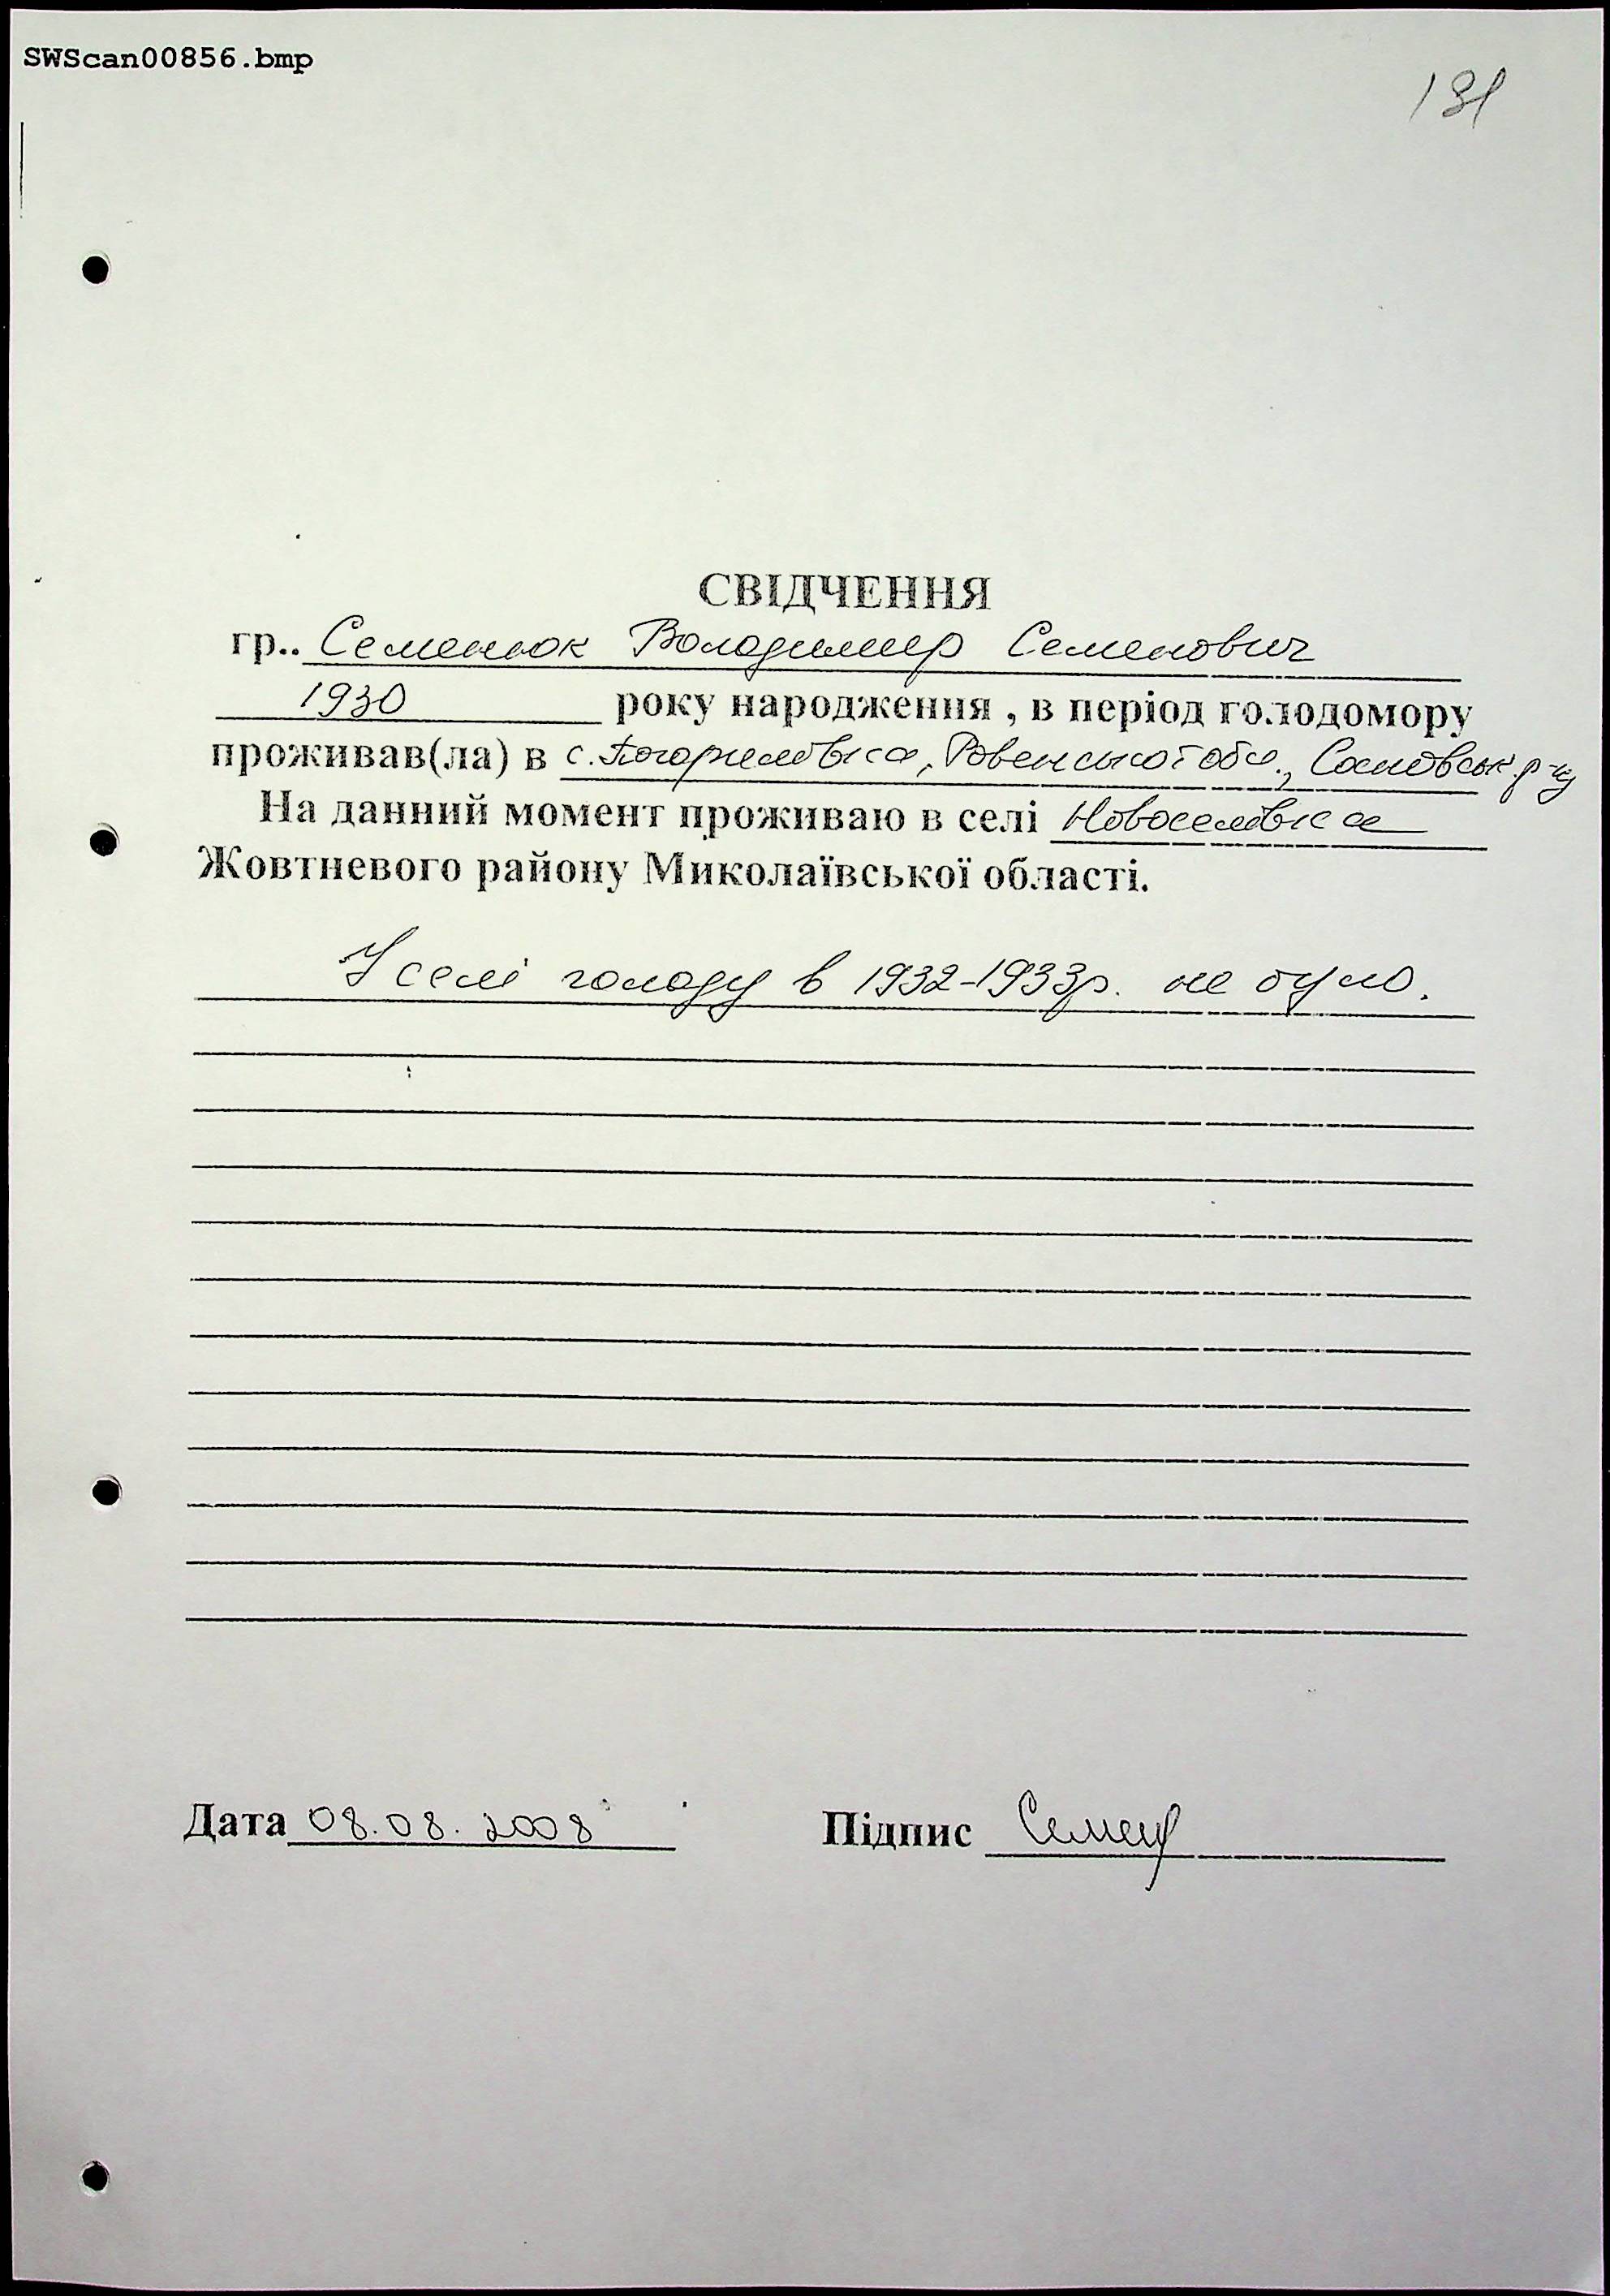 SWScan00856.bmp
191
СВІДЧЕННЯ
гр.. Семенюк Володимир Семенович
1930 року народження , в період голодомору
проживав(ла) в с. Погориловка, Ровенської обл., р-ну
На данний момент проживаю в селі Новоселовка
Жовтневого району Миколаївської області.
У селі голоду в 1932-1933р. не було.
Дата 08.08.2008 Підпис Семен